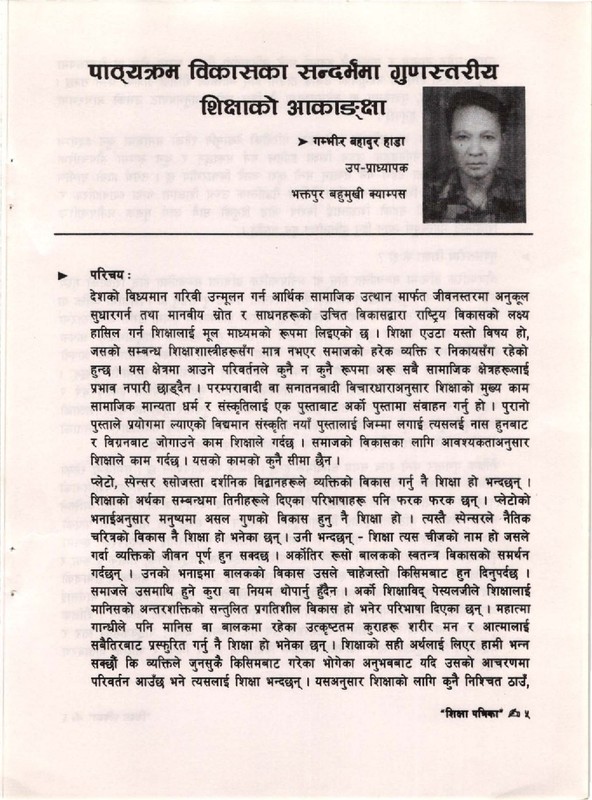 पाठ्यक्रम विकासका सन्दर्भमा गुणस्तरीय
शिक्षाको आकाङ्क्षा
➤ गम्भीर बहादुर हाडा
उप-प्राध्यापक
भक्तपुर बहुमुखी क्याम्पस
► परिचय :
देशको विध्यमान गरिवी उन्मूलन गर्न आर्थिक सामाजिक उत्थान मार्फत जीवनस्तरमा अनुकूल
सुधारगर्न तथा मानबीय स्रोत र साधनहरूको उचित विकासद्वारा राष्ट्रिय विकासको लक्ष्य
हासिल गर्न शिक्षालाई मूल माध्यमको रूपमा लिइएको छ । शिक्षा एउटा यस्तो विषय हो,
जसको सम्बन्ध शिक्षाशास्त्रीहरूसँग मात्र नभएर समाजको हरेक व्यक्ति र निकायसँग रहेको
हुन्छ । यस क्षेत्रमा आउने परिवर्तनले कुनै न कुनै रूपमा अरू सबै सामाजिक क्षेत्रहरूलाई
प्रभाव नपारी छाड्दैन । परम्परावादी वा सनातनबादी विचारधाराअनुसार शिक्षाको मुख्य काम
सामाजिक मान्यता धर्म र संस्कृतिलाई एक पुस्ताबाट अर्को पुस्तामा संवाहन गर्नु हो । पुरानो
पुस्ताले प्रयोगमा ल्याएको विद्यमान संस्कृति नयाँ पुस्तालाई जिम्मा लगाई त्यसलई नास हुनबाट
र विग्रनबाट जोगाउने काम शिक्षाले गर्दछ । समाजको विकासका लागि आवश्यकताअनुसार
शिक्षाले काम गर्दछ । यसको कामको कुनै सीमा छैन ।
प्लेटो, स्पेन्सर रुसोजस्ता दर्शनिक विद्वानहरूले व्यक्तिको विकास गर्नु नै शिक्षा हो भन्दछन् ।
शिक्षाको अर्थका सम्बन्धमा तिनीहरूले दिएका परिभाषाहरू पनि फरक फरक छन् । प्लेटोको
भनाईअनुसार मनुष्यमा असल गुणको विकास हुनु नै शिक्षा हो । त्यस्तै स्पेन्सरले नैतिक
चरित्रको विकास नै शिक्षा हो भनेका छन् । उनी भन्दछन् - शिक्षा त्यस चीजको नाम हो जसले
गर्दा व्यक्तिको जीवन पूर्ण हुन सक्दछ । अर्कोतिर रूसो बालकको स्वतन्त्र विकासको समर्थन
गर्दछन् । उनको भनाइमा बालकको विकास उसले चाहेजस्तो किसिमबाट हुन दिनुपर्दछ ।
समाजले उसमाथि हुने कुरा बा नियम थोपार्नु हुँदैन । अर्को शिक्षाविद् पेस्यलजीले शिक्षालाई
मानिसको अन्तरशक्तिको सन्तुलित प्रगतिशील बिकास हो भनेर परिभाषा दिएका छन् । महात्मा
गान्धीले पनि मानिस वा बालकमा रहेका उत्कृष्टतम कुराहरू शरीर मन र आत्मालाई
सबैतिरबाट प्रस्फुरित गर्नु नै शिक्षा हो भनेका छन् । शिक्षाको सही अर्थलाई लिएर हामी भन्न
सक्छौं कि व्यक्तिले जुनसुकै किसिमबाट गरेका भोगेका अनुभबबाट यदि उसको आचरणमा
परिवर्तन आउँछ भने त्यसलाई शिक्षा भन्दछन् । यसअनुसार शिक्षाको लागि कुनै निश्चित ठाउँ,
"शिक्षा पत्रिका" ✍ ५